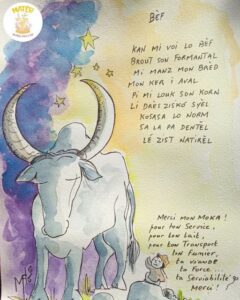 MATER
BÈF
KAN MI VOI LO BÈF
BROUT SON FORMANTAL
MI MANZ MON BRÈD
MON KÈR I AVAL
PI MI LOUK SON KORN
LI DRÈS ZISKO SYÈL
KOSASA LO NORM
SA LA PA DENTÈL
LÉ ZIST NATIRÈL
Merci mon MOKA !
pour ton Service,
pour ton Lait,
pour ton Transport
ton Fumier,
ta viande
ta Force...
ta Serviabilité
Merci !